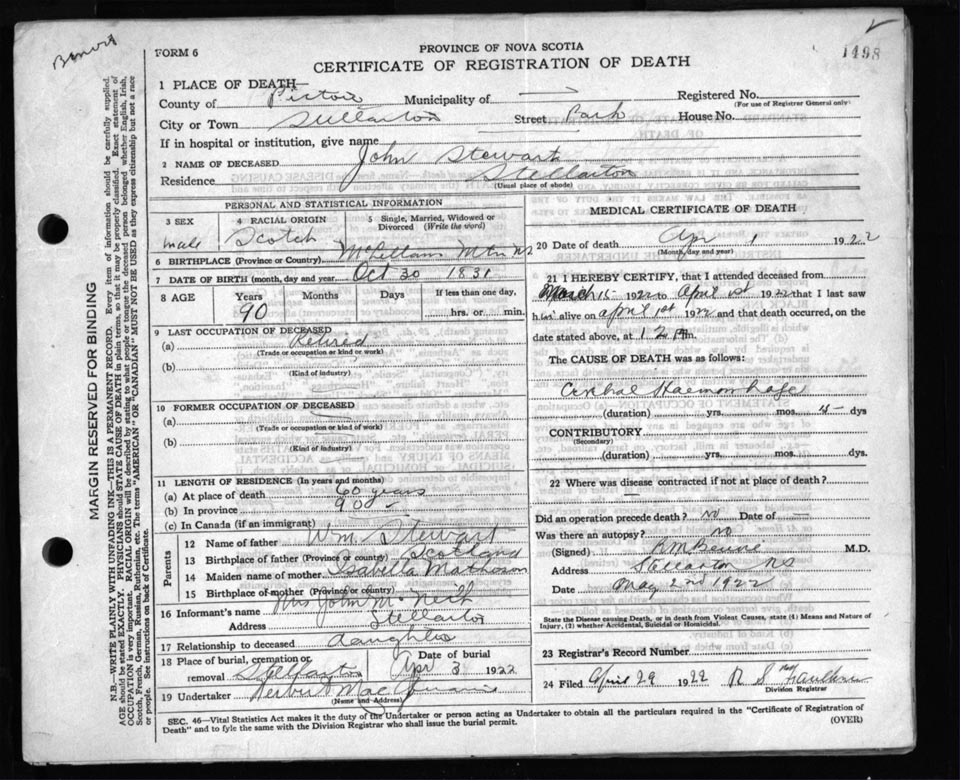 FORM 6
PROVINCE OF NOVA SCOTIA
1498
CERTIFICATE OF REGISTRATION OF DEATH
1 PLACE OF DEATH—
County of Pictou Municipality of — Registered No.
(For use of Registrar General only)
City or Town Stellarton Street Park House No.
If in hospital or institution, give name
2 NAME OF DECEASED John Stewart
Residence Stellarton
(Usual place of abode)
PERSONAL AND STATISTICAL INFORMATION
3 SEX 4 RACIAL ORIGIN 5 Single, Married, Widowed or Divorced (Write the word)
male Scotch
6 BIRTHPLACE (Province or Country) McLellans Mtn NS
7 DATE OF BIRTH (month, day and year) Oct 30 1831
8 AGE Years Months Days If less than one day,
90 hrs. or min.
9 LAST OCCUPATION OF DECEASED
(a) Retired
(Trade or occupation or kind or work)
(b)
(Kind of industry)
10 FORMER OCCUPATION OF DECEASED
(a)
(Trade or occupation or kind of work)
(b)
(Kind of industry)
11 LENGTH OF RESIDENCE (In years and months)
(a) At place of death 60 years
(b) In province 90
(c) In Canada (if an immigrant)
Parents
12 Name of father Wm. Stewart
13 Birthplace of father (Province or country) Scotland
14 Maiden name of mother Isabella Matheson
15 Birthplace of mother (Province or country)
16 Informant's name Mrs John McNeil
Address Stellarton
17 Relationship to deceased daughter
18 Place of burial, cremation or removal Stellarton Date of burial Apr 3 1922
19 Undertaker
(Name and Address)
MEDICAL CERTIFICATE OF DEATH
20 Date of death Apr 1 1922
(Month, day and year)
21 I HEREBY CERTIFY, that I attended deceased from
March 15 1922 to April 1st 1922 that I last saw
him alive on April 1st 1922 and that death occurred, on the
date stated above, at 12 Pm.
The CAUSE OF DEATH was as follows:
Cerebral Haemorrhage
(duration) yrs. mos. dys
CONTRIBUTORY
(Secondary)
(duration) yrs. mos. dys.
22 Where was disease contracted if not at place of death?
Did an operation precede death? no Date of —
Was there an autopsy? no
(Signed) M.D.
Address Stellarton NS
Date May 2nd 1922
State the Disease causing Death, or in death from Violent Causes, state (1) Means and Nature of Injury, (2) whether Accidental, Suicidal or Homicidal.
23 Registrar's Record Number
24 Filed April 29 1922
Division Registrar
SEC. 46—Vital Statistics Act makes it the duty of the Undertaker or person acting as Undertaker to obtain all the particulars required in the "Certificate of Registration of
Death" and to fyle the same with the Division Registrar who shall issue the burial permit.
(OVER)
MARGIN RESERVED FOR BINDING
N.B.—WRITE PLAINLY WITH UNFADING INK—THIS IS A PERMANENT RECORD. Every item of information should be carefully supplied.
AGE should be stated EXACTLY. PHYSICIANS should STATE CAUSE OF DEATH in plain terms, so that it may be properly classified. Exact statement of
OCCUPATION is very important. RACIAL ORIGIN will be described by stating to what people or tongue the deceased person belonged whether English, Irish,
Scotch, French, German, Russian, Ruthenian, etc. The terms "AMERICAN" OR "CANADIAN" MUST NOT BE USED as they express citizenship but not a race
or people. See instructions on back of Certificate.